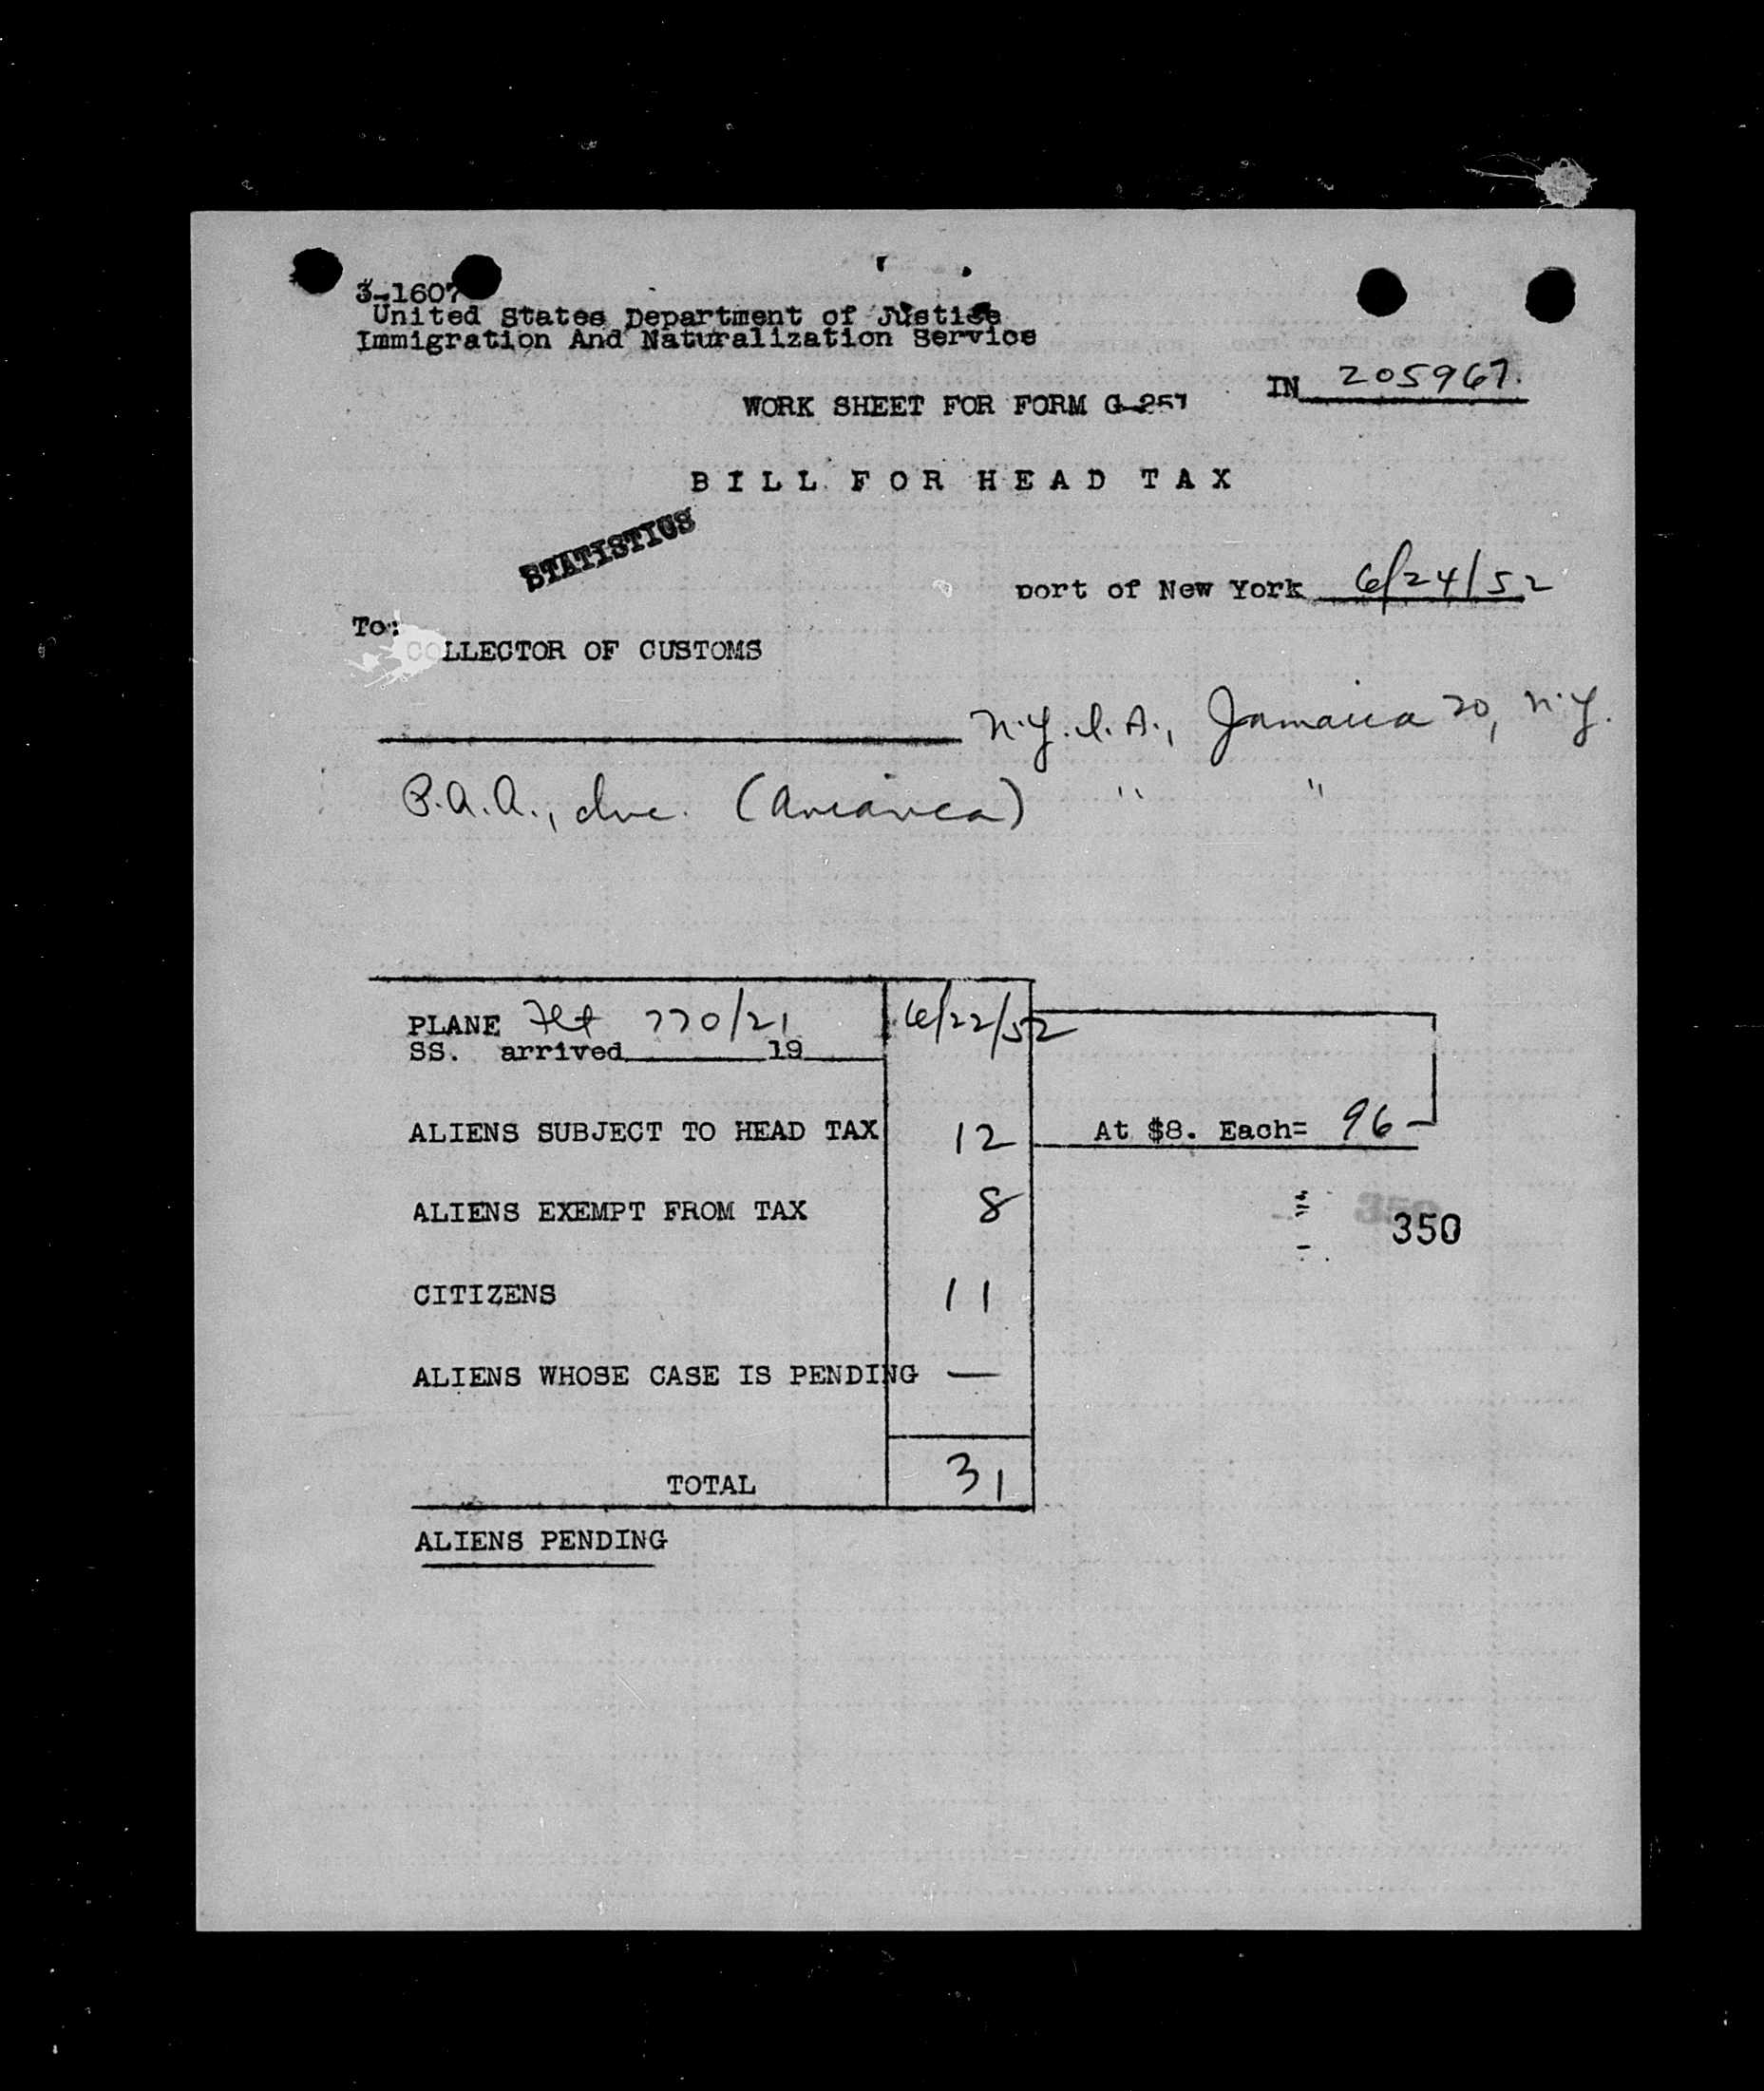 3-1607
United States Department of Justice
Immigration And Naturalization Service
IN 205967.
WORK SHEET FOR FORM G-257
BILL FOR HEAD TAX
STATISTICS
port of New York 6/24/52
To:
COLLECTOR OF CUSTOMS
N.Y.I.A., Jamaica 20, N.Y.
P.A.A., Inc. (Avianca) " "
PLANE Flt 770/21 6/22/52
SS. arrived 19
ALIENS SUBJECT TO HEAD TAX 12 At $8. Each= 96-
ALIENS EXEMPT FROM TAX 8
350
CITIZENS 11
ALIENS WHOSE CASE IS PENDING —
TOTAL 31
ALIENS PENDING